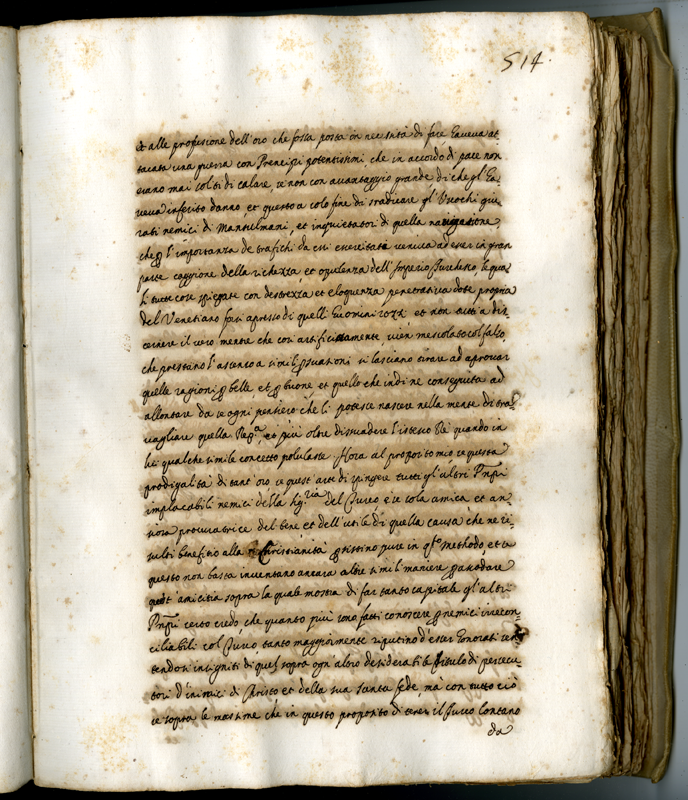 514.
et alle profusione dell'oro che fossa posta in necessità di fare haveva at
taccata una guerra con Prencipi potentissimi che in accordo di pace non
siano mai soliti di calare, se non con avantaggio grande di chi gl'ha
veva inferito danno, et questo a solo fine di sradicare gl'Uscochi giu
rati nemici di Mansulmani, et inquietatori di quella navigatione,
che p l'importanza de trafichi da essi esercitata veniva ad esser in gran
parte caggione della richezza et opulenza dell'Imperio Turchesco, le qua
li tutte cose spiegate con destrezza et eloquenza penetrativa dote propria
del Venetiano fan apresso di quelli huomini rozzi et non atti a dis
cernere il vero mentre che con artificiosamente, vien mescolato col falso,
che prestano l'assenso a simil psuasioni si lasciano tirare ad aprovar
quelle ragioni p belle, et p buone, et quello che indi ne conseguita ad
allontare da se ogni pensiero che li potesse nascere nella mente di tra
vagliare quella Rep.ca et più oltre dissuadere l'istesso Rè quando in
lui qualche simile concetto polulasse. Hora al proposito mio se questa
prodigalità di tant'oro se quest'arti di spingere tutti gl'altri Pnpi
implacabili nemici della del Turco è se sola amica et an
nora procuratrice del bene et dell'utile di quella causa che ne ri
sulti benefitio alla Christianità pstissino pure in qto methodo, et se
questo non basta inventano ancora altre simili maniere p assodare
quest'amicitia sopra la quale mostra di far tanto capitale gl'altri
Pnpi certo credo che quanto più sono fatti conoscere p nemici irrecon
ciliabili col Turco tanto maggiormente riputino d'esser honorati sen
tendosi insigniti di quel sopra ogn'altro desiderabile titulo di persecu
tori d'inimici di Christo et della sua santa fede, mà con tutto ciò
se sopra le massime che in questo proposito di tener il Turco lontano
da